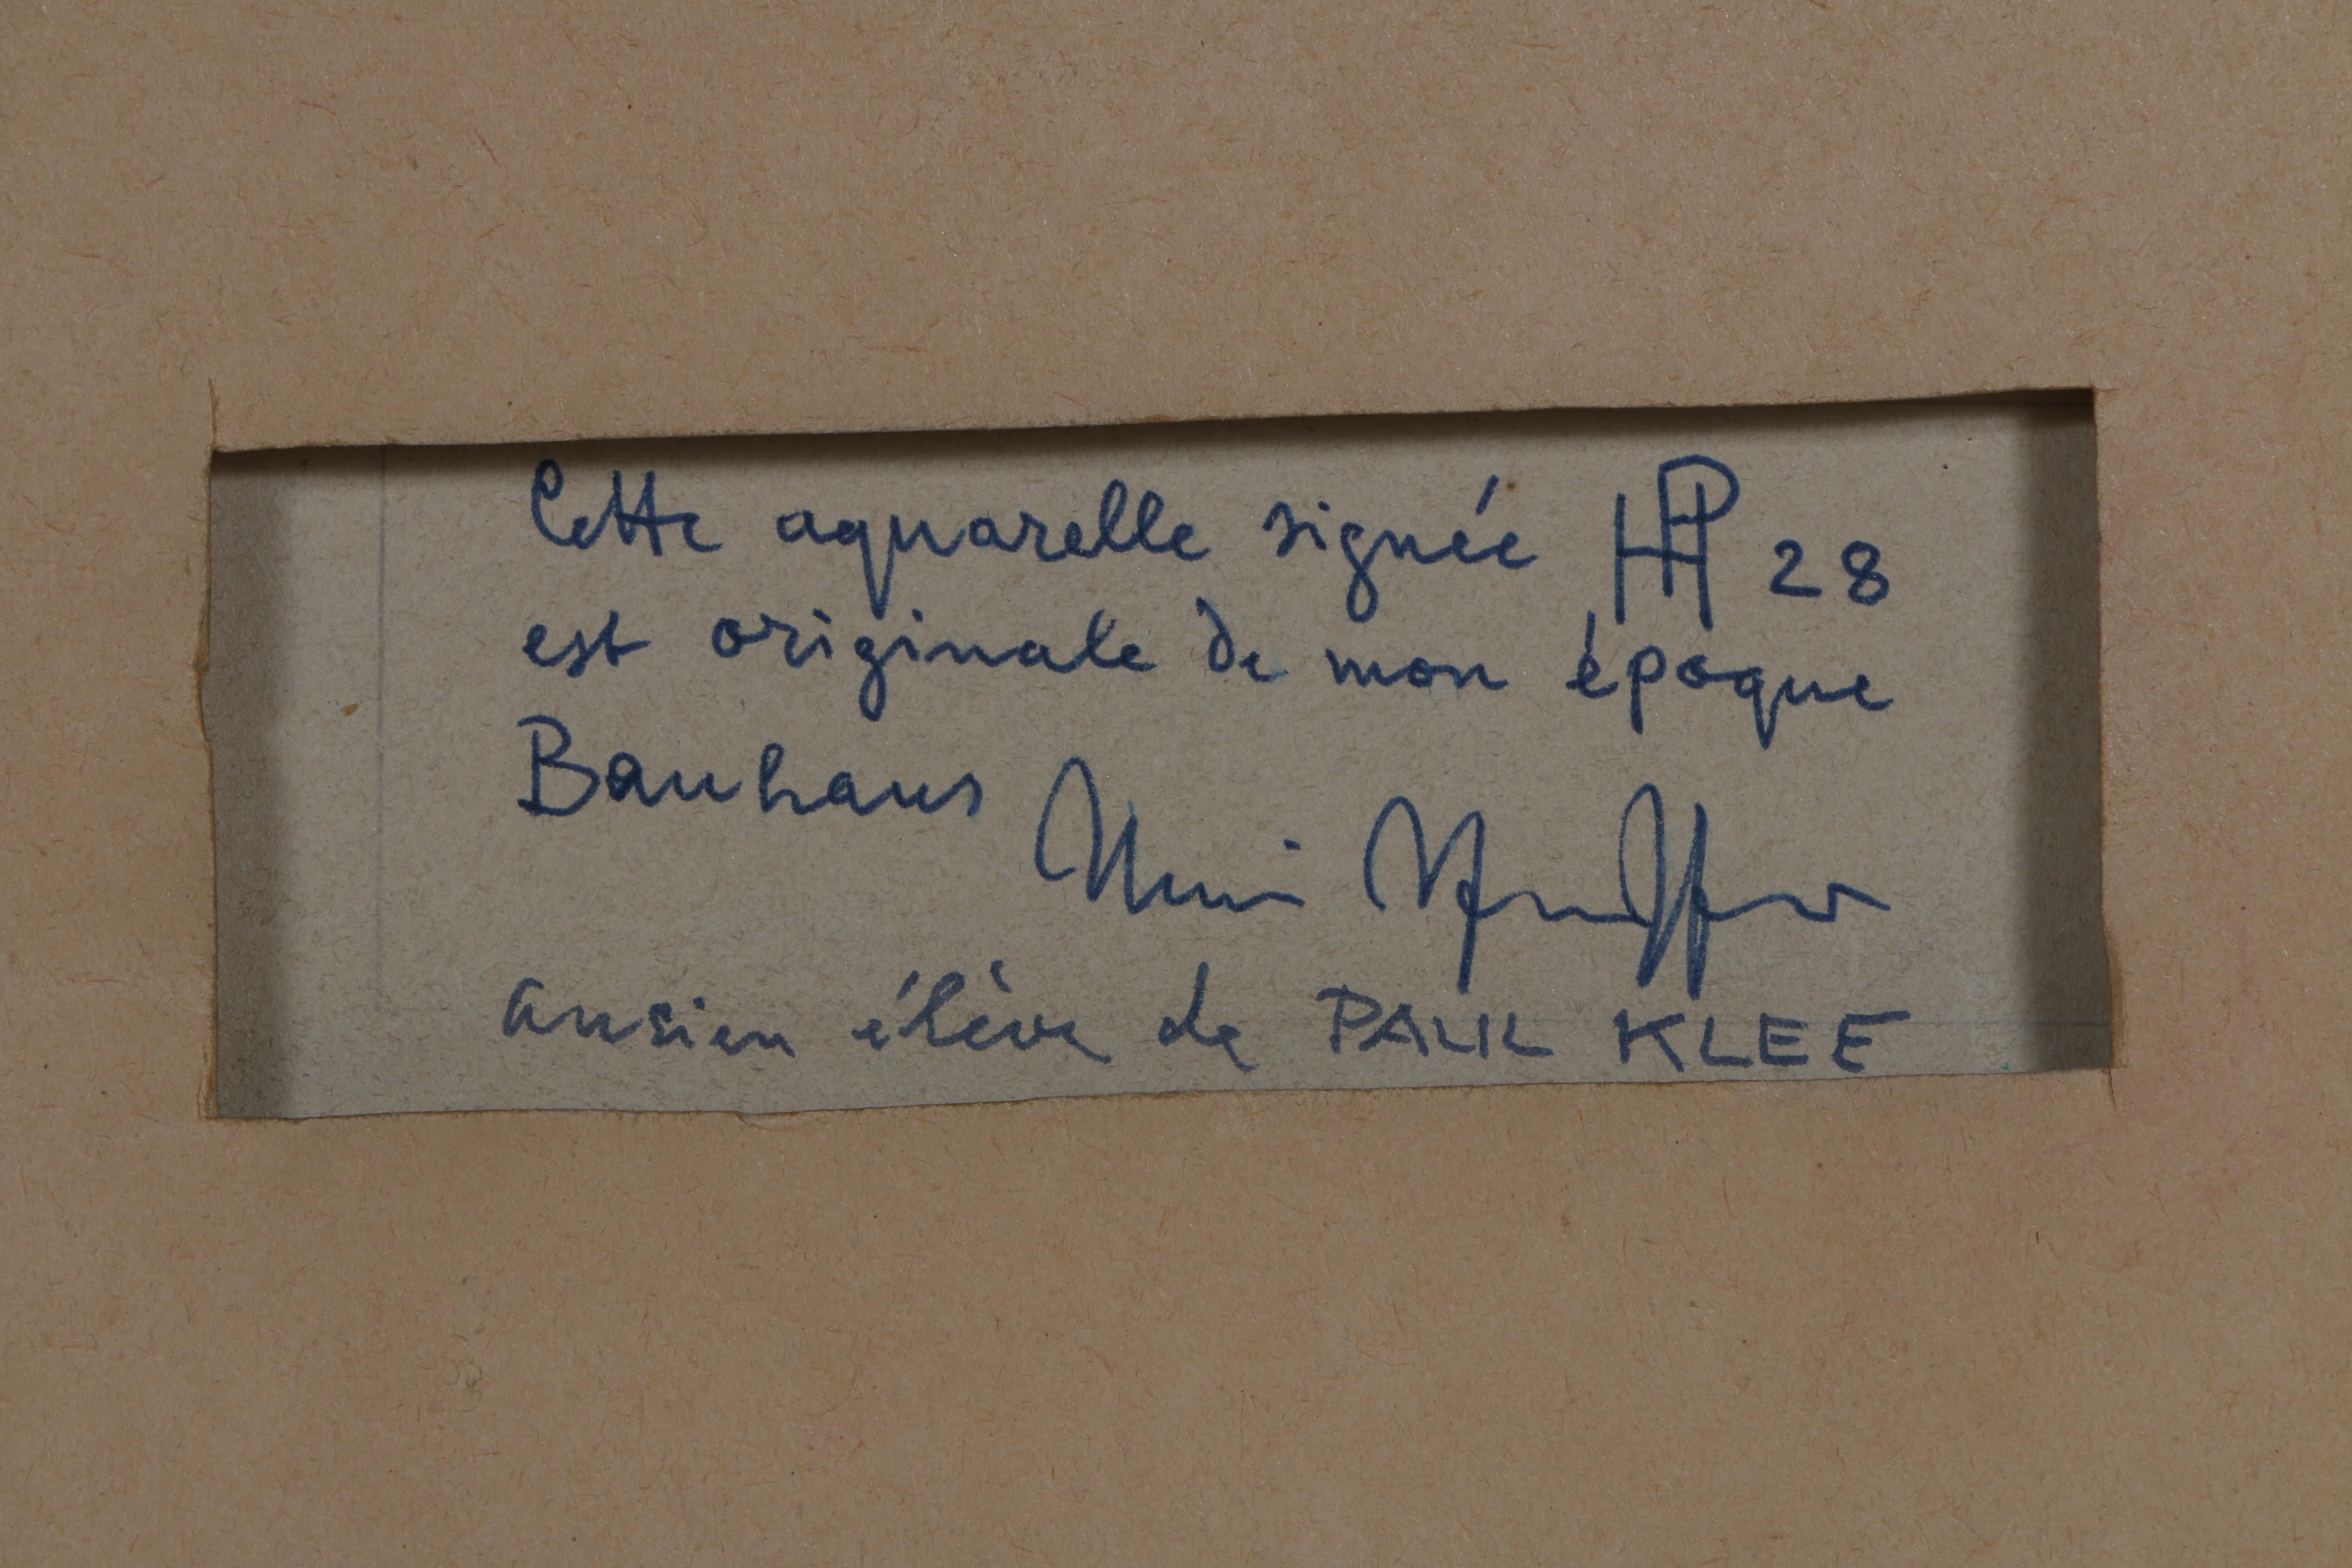 Cette aquarelle signée HP 28
est originale de mon époque
Bauhaus
ancien élève de PAUL KLEE